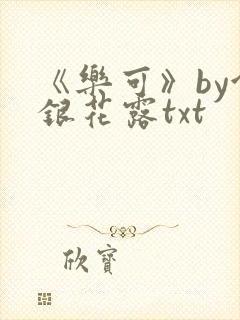 《樂可》by
銀花露txt
欣寶